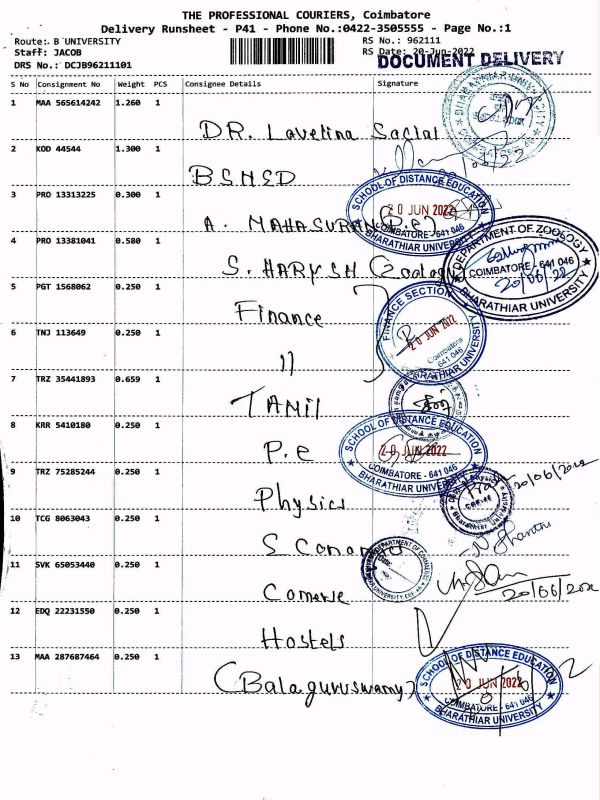 THE PROFESSIONAL COURIERS, Coimbatore
Delivery Runsheet - P41 - Phone No.:0422-3505555 - Page No.:1
Route: B UNIVERSITY RS No.: 962111
Staff: JACOB RS Date: 20-Jun-2022
DRS No.: DCJB96211101 DOCUMENT DELIVERY
S No Consignment No Weight PCS Consignee Details Signature
1 MAA 565614242 1.260 1
DR. Lavelina
2 KOD 44544 1.300 1
BSMSD
3 PRO 13313225 0.300 1
SCHOOL OF DISTANCE EDUCATION
20 JUN 2022
COIMBATORE - 641 046
BHARATHIAR UNIVERSITY
A. (P.e)
4 PRO 13381041 0.580 1
DEPARTMENT OF ZOOLOGY
COIMBATORE - 641 046
20/06/22
BHARATHIAR UNIVERSITY
S. HARISH (Zoology)
5 PGT 1568062 0.250 1
FINANCE SECTION
20 JUN 2022
Coimbatore
641 046
BHARATHIAR UNIVERSITY
Finance
6 TNJ 113649 0.250 1
11
7 TRZ 35441893 0.659 1
TAMIL
8 KRR 5410180 0.250 1
SCHOOL OF DISTANCE EDUCATION
20 JUN 2022
COIMBATORE - 641 046
BHARATHIAR UNIVERSITY
P.e
9 TRZ 75285244 0.250 1
20/06/2022
Physics
10 TCG 8063043 0.250 1
S
11 SVK 65053440 0.250 1
20/06/202
Comerse
12 EDQ 22231550 0.250 1
Hostels
13 MAA 287687464 0.250 1
SCHOOL OF DISTANCE EDUCATION
20 JUN 2022
COIMBATORE - 641 046
BHARATHIAR UNIVERSITY
(Balaguruswamy)